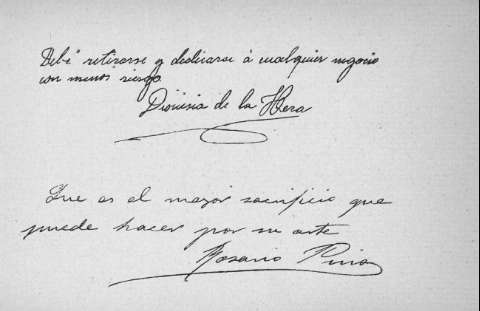 Debe retirarse y dedicarse á cualquier negocio
con menos riesgo
Dionisia de la Hera
Que es el mayor sacrificio que
puede hacer por su arte
Rosario Pino